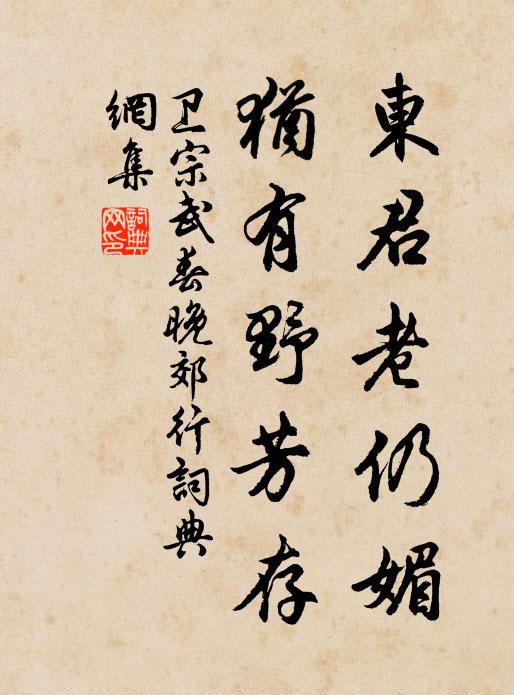 東君老仍媚
猶有野芳存
卫宗武春晚郊行詞典
網集
詞典
网印